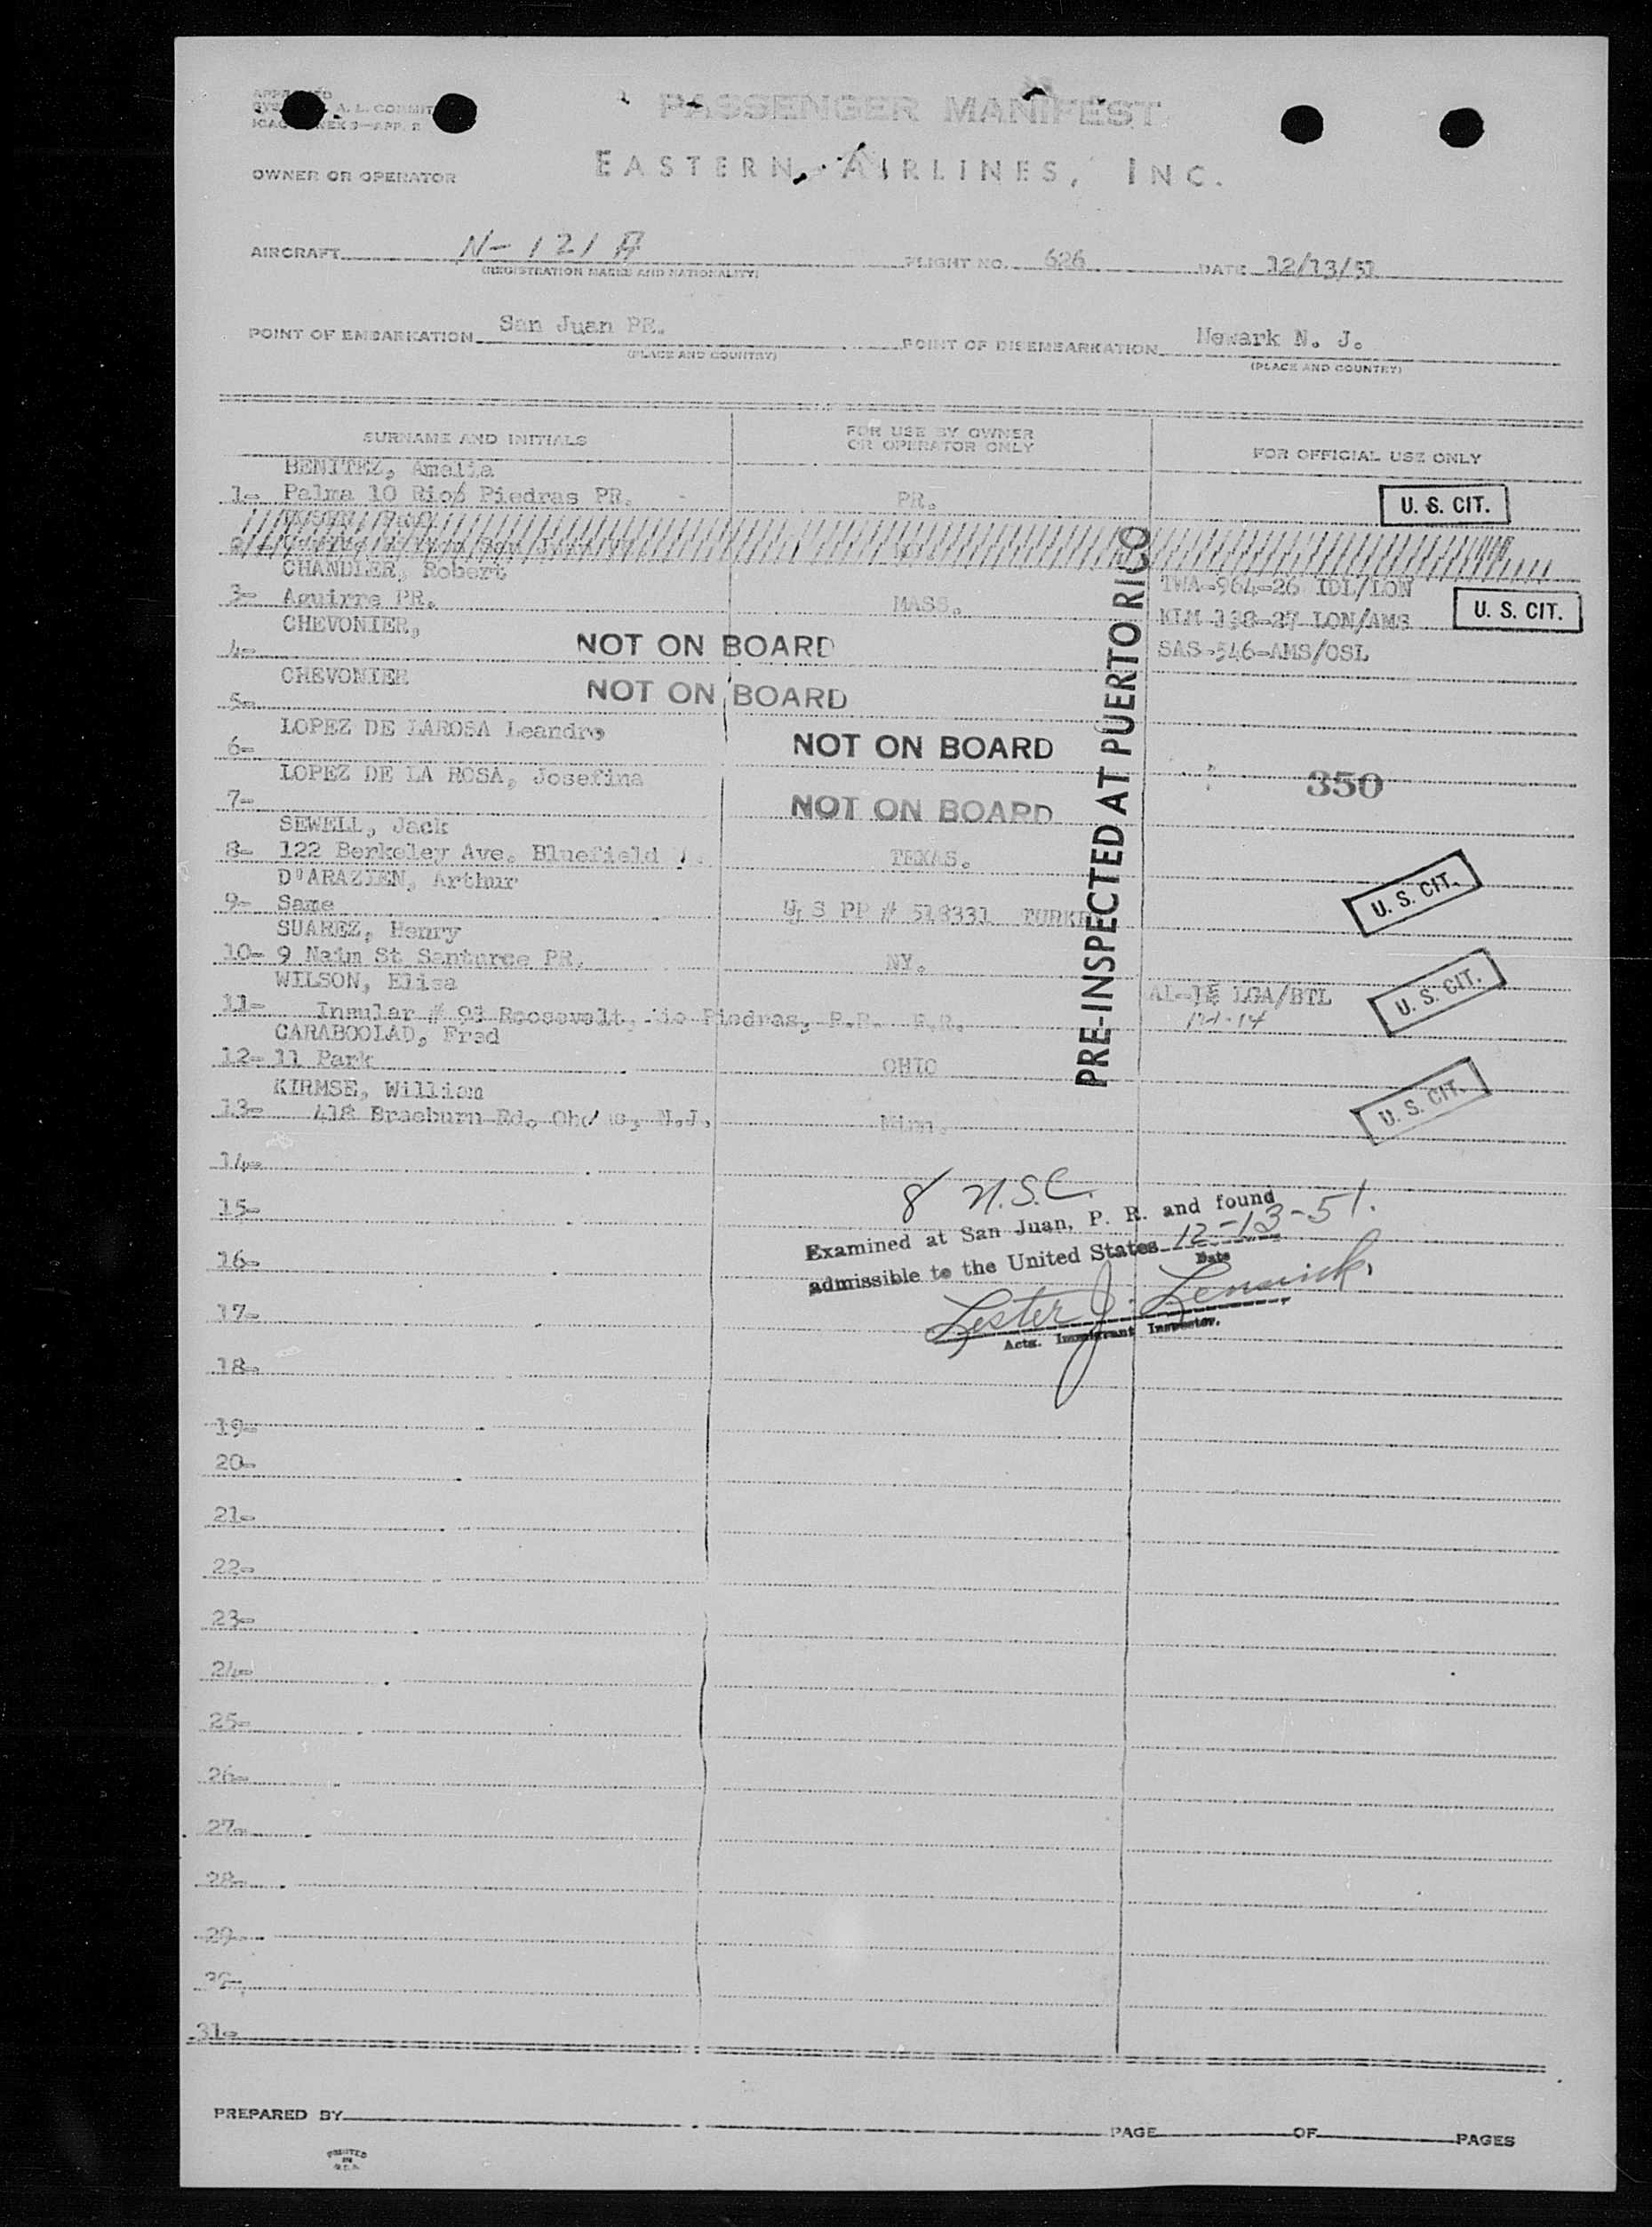 PASSENGER MANIFEST
EASTERN AIRLINES, INC.
OWNER OR OPERATOR
AIRCRAFT N-121A FLIGHT NO. 626 DATE 12/13/51
(REGISTRATION MARKS AND NATIONALITY)
POINT OF EMBARKATION San Juan PR. POINT OF DISEMBARKATION Newark N. J.
(PLACE AND COUNTRY) (PLACE AND COUNTRY)
SURNAME AND INITIALS FOR USE BY OWNER OR OPERATOR ONLY FOR OFFICIAL USE ONLY
BENITEZ, Amelia
1- Palma 10 Rio Piedras PR. PR. U. S. CIT.
CHANDLER, Robert TWA-964-26 IDL/LON
3- Aguirre PR. MASS. KLM-138-27 LON/AMS U. S. CIT.
CHEVONIER,
4- NOT ON BOARD SAS-546-AMS/OSL
CHEVONIER
5- NOT ON BOARD
LOPEZ DE LAROSA Leandro
6- NOT ON BOARD
LOPEZ DE LA ROSA, Josefina 350
7- NOT ON BOARD
SEWELL, Jack
8- 122 Berkeley Ave. Bluefield TEXAS.
D'ARAZIEN, Arthur U. S. CIT.
9- Same U S PP # 518331
SUAREZ, Henry
10- 9 Naim St Santurce PR. NY.
WILSON, Elisa LGA/BTL U. S. CIT.
11- Insular # 93 Roosevelt, Rio Piedras, P.R. P.R.
CARABOOLAD, Fred
12- 11 Park OHIO
KIRMSE, William U. S. CIT.
13- 418 Braeburn Rd. N.J.
PRE-INSPECTED AT PUERTO RICO
14-
8 U.S.C.
15-
Examined at San Juan, P. R. and found
admissible to the United States 12-13-51.
Date
16-
Lester J.
17-
Actg. Immigrant Inspector.
18-
19-
20-
21-
22-
23-
24-
25-
26-
27-
28-
29-
30-
31-
PREPARED BY PAGE OF PAGES
PRINTED
IN
U.S.A.